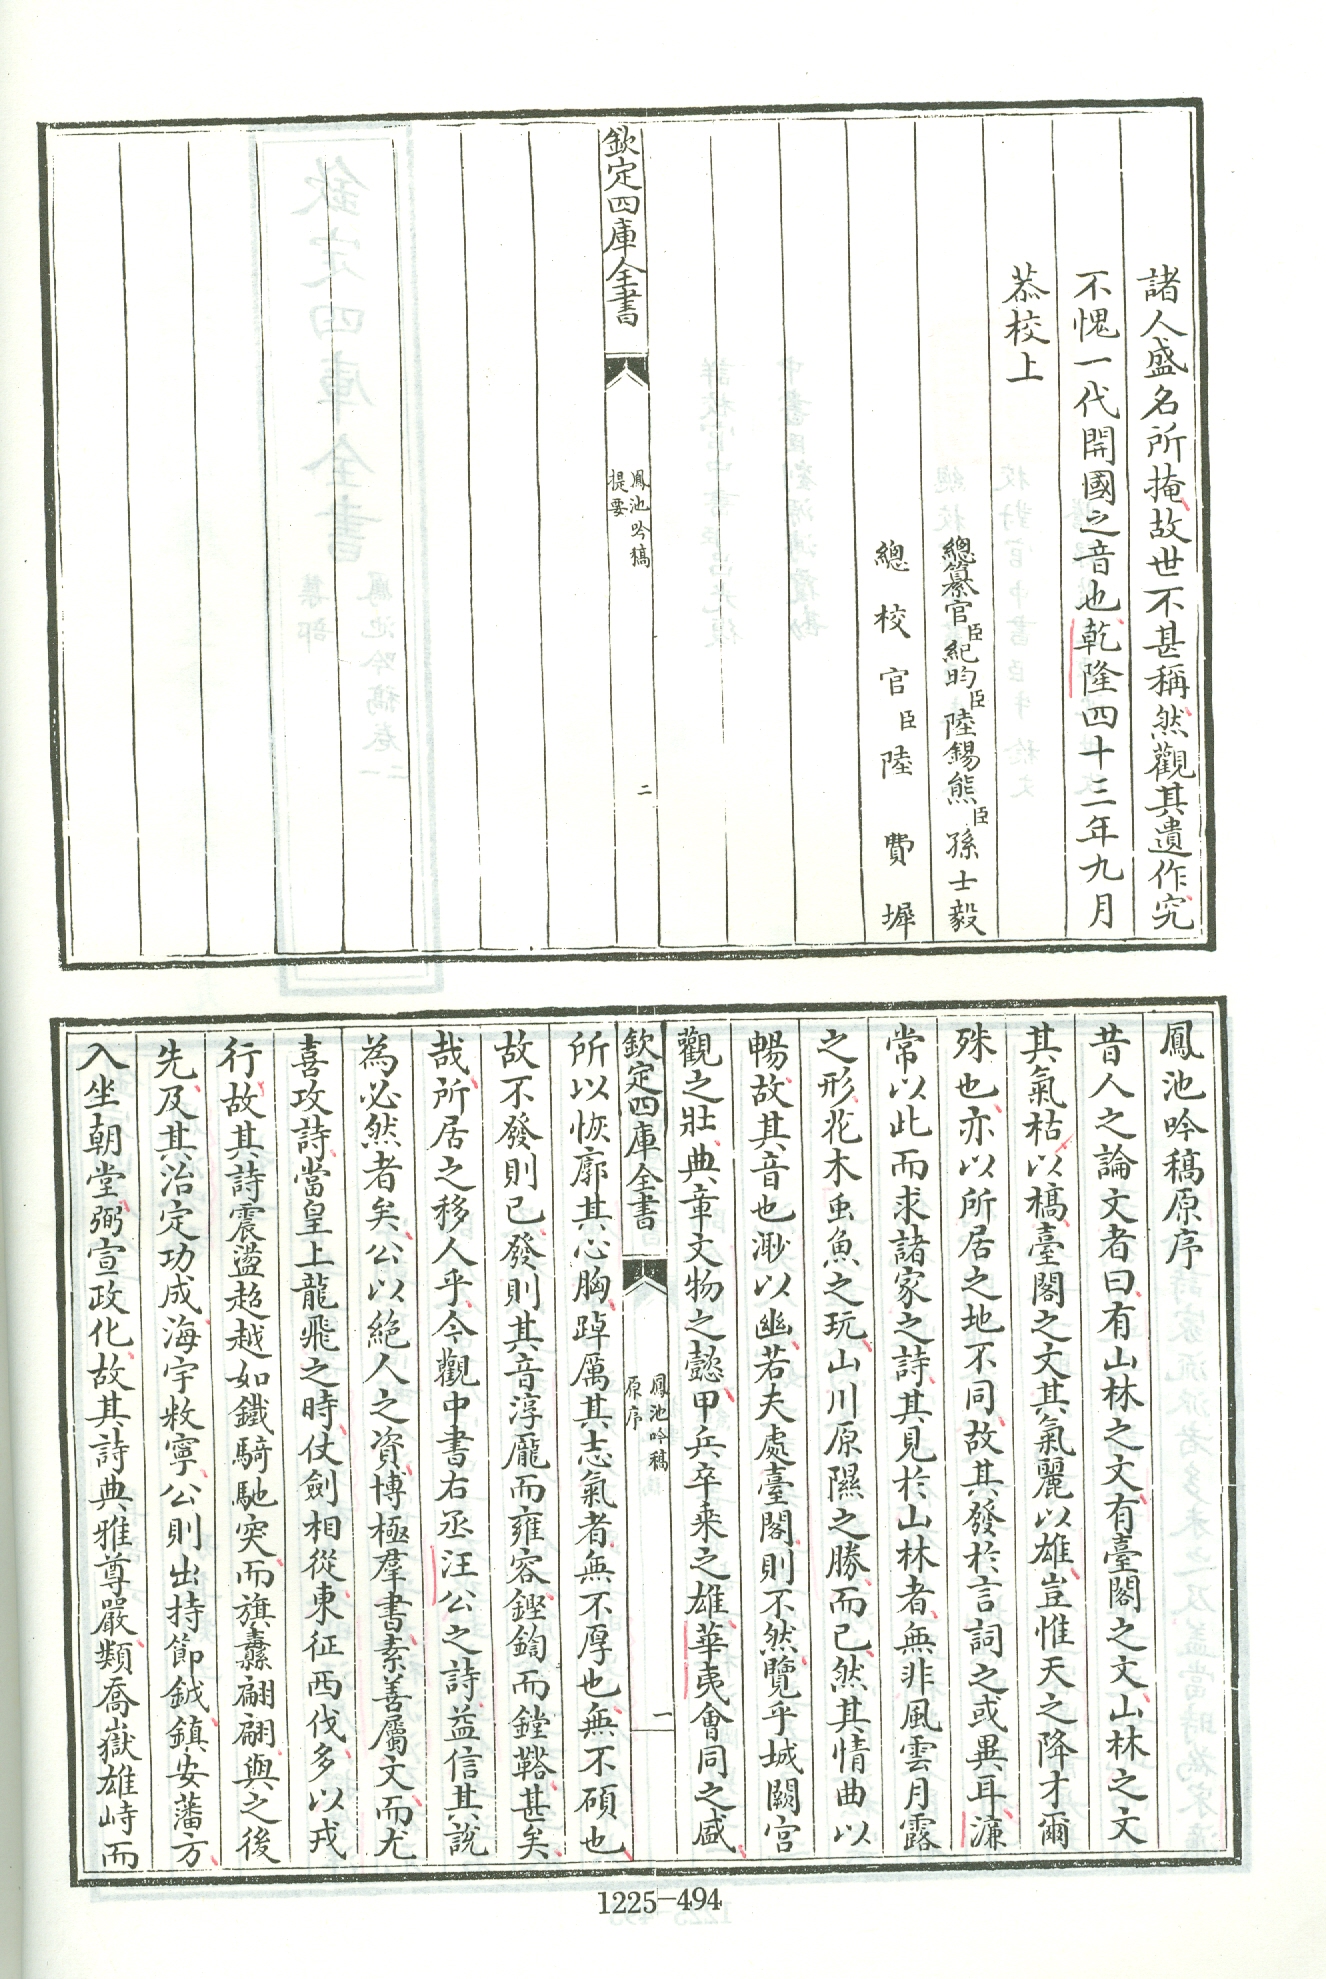 諸人盛名所掩故世不甚稱然觀其遺作究
不愧一代開國之音也乾隆四十三年九月
恭校上
總纂官臣紀昀臣陸錫熊臣孫士毅
總校官臣陸費墀
欽定四庫全書
鳳池吟稿
提要
二
鳳池吟稿原序
昔人之論文者曰有山林之文有臺閣之文山林之文
其氣枯以槁臺閣之文其氣麗以雄豈惟天之降才爾
殊也亦以所居之地不同故其發於言詞之或異耳濂
常以此而求諸家之詩其見於山林者無非風雲月露
之形花木虫魚之玩山川原隰之勝而已然其情曲以
暢故其音也渺以幽若夫處臺閣則不然覽乎城闕宮
觀之壯典章文物之懿甲兵卒乗之雄華夷會同之盛
欽定四庫全書
鳳池吟稿
原序
一
所以恢廓其心胸踔厲其志氣者無不厚也無不碩也
故不發則已發則其音淳龎而雍容鏗鍧而鏜鞳甚矣
哉所居之移人乎今觀中書右丞汪公之詩益信其説
為必然者矣公以絶人之資博極羣書素善屬文而尤
喜攻詩當皇上龍飛之時仗劍相從東征西伐多以戎
行故其詩震盪超越如鐵騎馳突而旗纛翩翩與之後
先及其治定功成海宇敉寧公則出持節鉞鎮安藩方
入坐朝堂弼宣政化故其詩典雅尊嚴類喬嶽雄峙而
1225-494